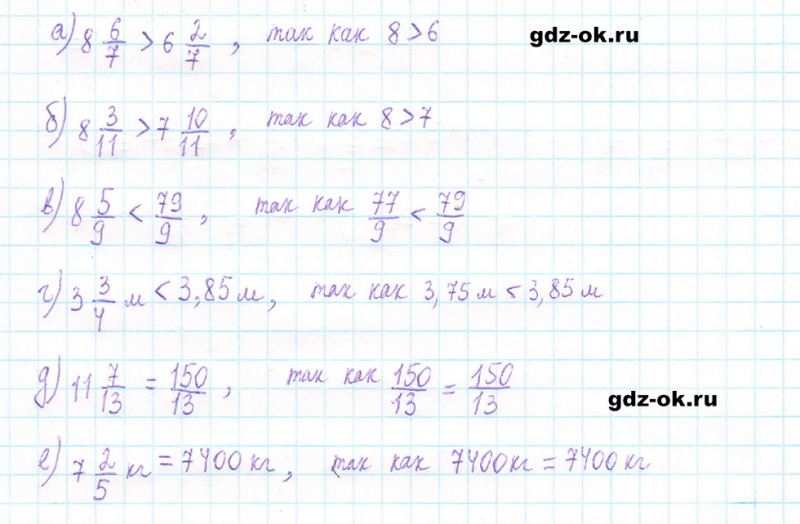 а) 8 6/7 > 6 2/7, так как 8 > 6
gdz-ok.ru
б) 8 3/11 > 7 10/11, так как 8 > 7
в) 8 5/9 < 79/9, так как 77/9 < 79/9
г) 3 3/4 м < 3,85 м, так как 3,75 м < 3,85 м
д) 11 7/13 = 150/13, так как 150/13 = 150/13
gdz-ok.ru
е) 7 2/5 кг = 7400 кг, так как 7400 кг = 7400 кг